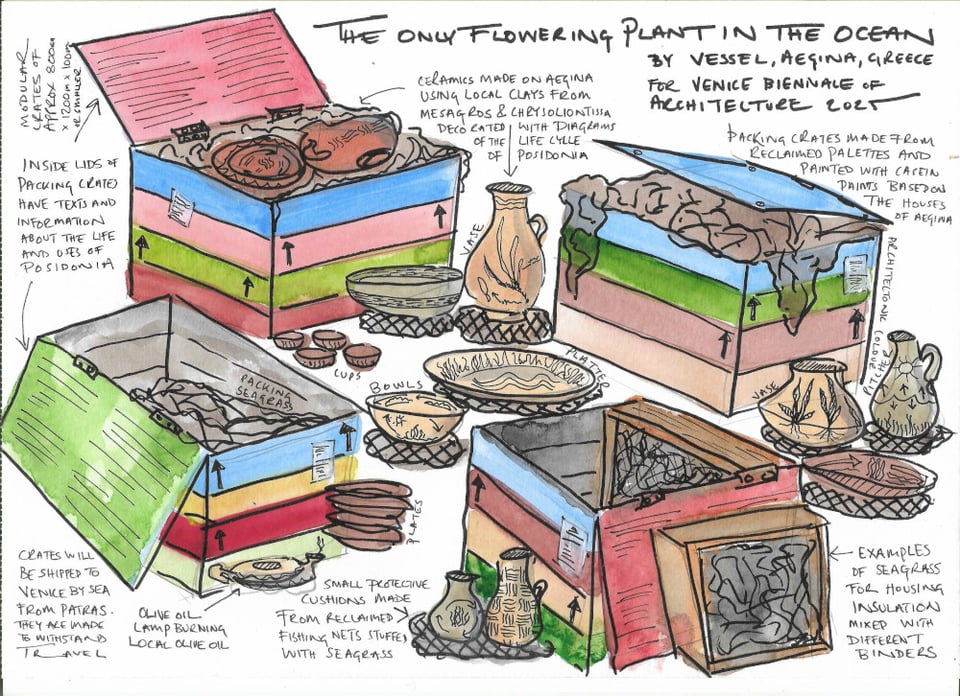 THE ONLY FLOWERING PLANT IN THE OCEAN
BY VESSEL, AEGINA, GREECE
FOR VENICE BIENNALE OF
ARCHITECTURE 2025
MODULAR
CRATES OF
APPROX 800mm
x 1200m x 100m
OR SMALLER
CERAMICS MADE ON AEGINA
USING LOCAL CLAYS FROM
MESAGROS & CHRYSOLIONTISSA
DECORATED WITH DIAGRAMS
OF THE LIFE CYCLE
OF POSIDONIA
PACKING CRATES MADE FROM
RECLAIMED PALETTES AND
PAINTED WITH CASEIN
PAINTS BASED ON
THE HOUSES
OF AEGINA
INSIDE LIDS OF
PACKING CRATES
HAVE TEXTS AND
INFORMATION
ABOUT THE LIFE
AND USES OF
POSIDONIA
VASE
ARCHITECTONIC COLOUR
CUPS
PLATTER
BOWLS
VASE
PITCHER
PACKING
SEAGRASS
PLATES
CRATES WILL
BE SHIPPED TO
VENICE BY SEA
FROM PATRAS.
THEY ARE MADE
TO WITHSTAND
TRAVEL
OLIVE OIL
LAMP BURNING
LOCAL OLIVE OIL
SMALL PROTECTIVE
CUSHIONS MADE
FROM RECLAIMED
FISHING NETS STUFFED
WITH SEAGRASS
EXAMPLES
OF SEAGRASS
FOR HOUSING
INSULATION
MIXED WITH
DIFFERENT
BINDERS